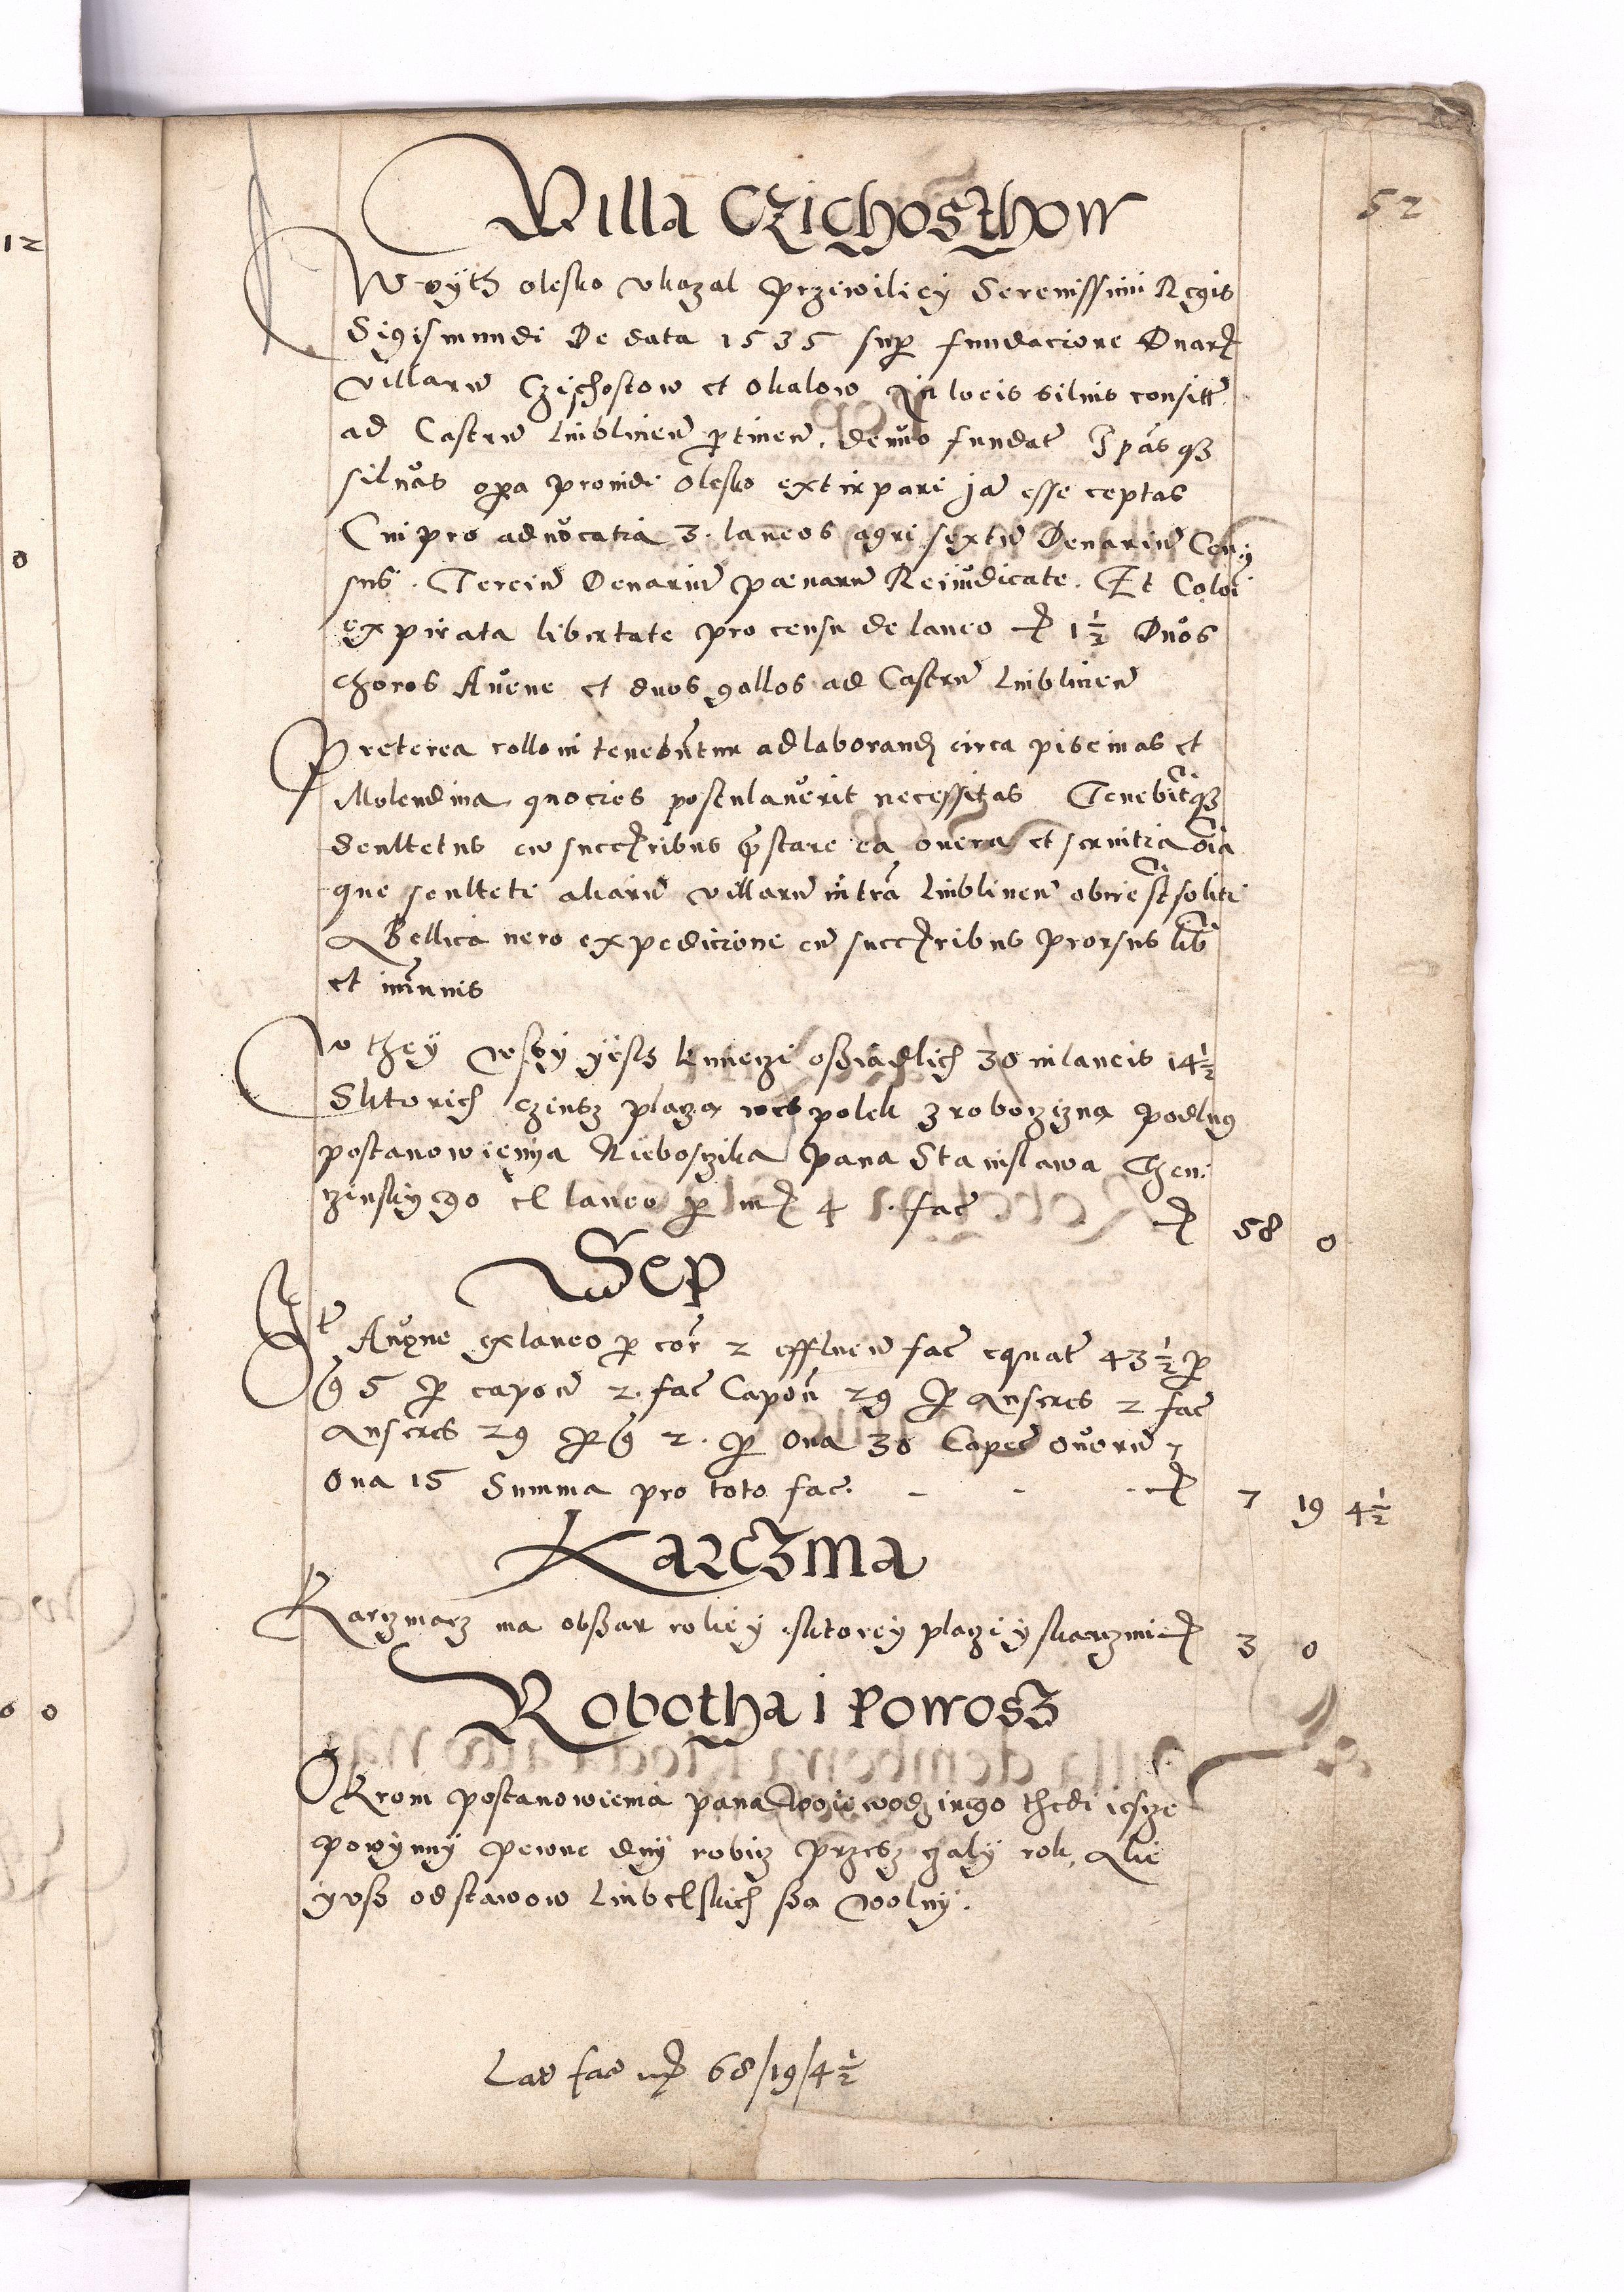 52
Villa Czichosthow
Woyth olesko vkazal Przewiliey Serenissimi Regis
Sigismundi De data 1535 sup fundacione Duarz
villarū Czichostow et okalow In locis silvis consitt
ad Castrū lublinen ptinen. denuo fundat Ipasqz
silvas opa providi olesko extirpari ja esse ceptas
Cui pro advocatia 3. laneos agri sextū Denariū Cen:
sus. Terciū Denariū pœnarū Reiudicate. Et Coloi
expirata libertate pro censu de laneo 1½ Duos
choros Avene et duos gallos ad Castrū lublinen
Preterea colloni tenebuntur ad laborand circa piscinas et
Molendina quocies postulaverit necessitas Tenebitqz
scultetus cū succribus pstare ea onera et servitia oia
que sculteti aliarū villarū intra lublinen obire st soliti
A Bellica vero expedicione cū succribus prorsus lib
et imunis
W they wsby yesth kmieczi osziadlich 30 in laneis 14½
Sktorich czinsz placza wespolek z robocizna podlug
postanowienya Nieboszika pana Stanislawa Then:
czinskygo el laneo p mz 4 . fac 58 0
Sep
It Avene ex laneo p cor 2 effluen fac equat 43½ p
g 5 p capon 2. fac Capon 29 p Anseres 2 fac
Anseres 29 p g 2. p Ova 30 Capec ovorū 7
Ova 15 Summa pro toto fac. - - 7 19 4½
Karczma
Karczmarz ma obszar roliey sktorey placzi y skarczmi 3 0
Robotha i Powosz
Okrom postanowienia pana woiewodzinego thedi iescze
powynny pewne dny robicz przesz czaly rok, Ale
yvsz od stawow lubelskich sza wolny.
Lat fac mz 68/19/4½
12
0
0 0